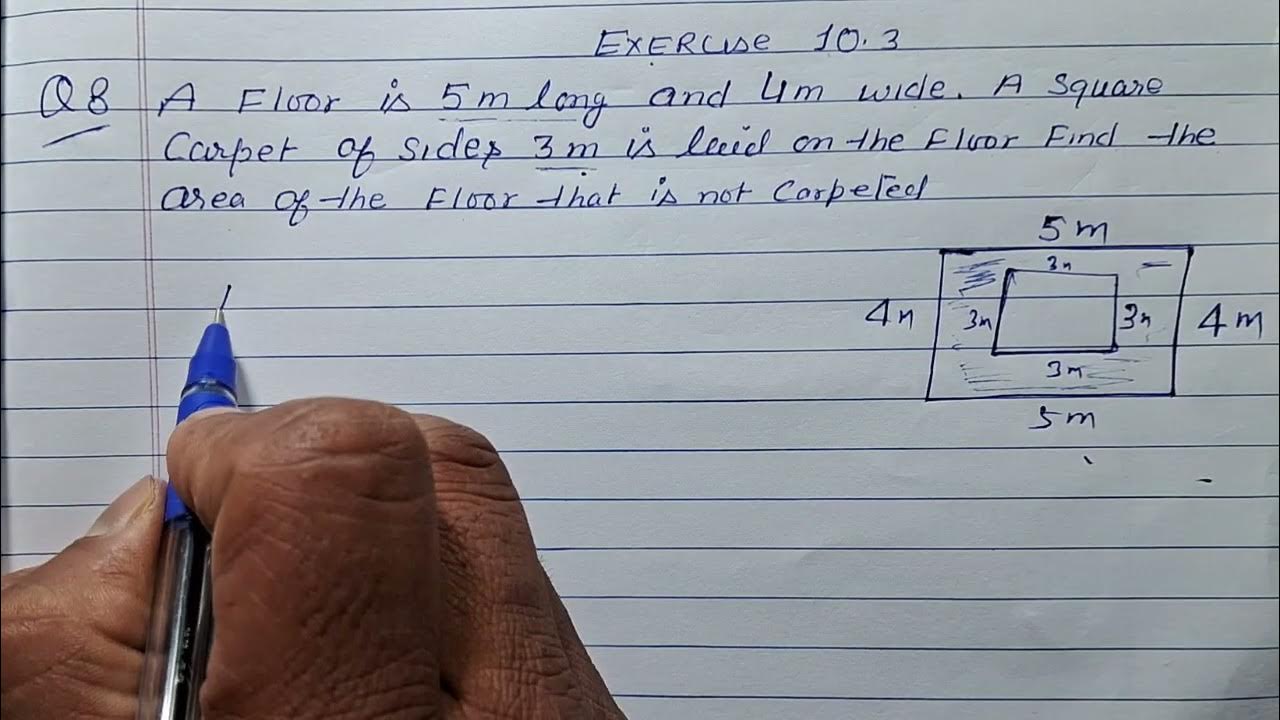 EXERCISE 10.3
Q8 A Floor is 5m long and 4m wide. A square
Carpet of sides 3m is laid on the Floor Find the
area of the Floor that is not Carpeted
5m
3n
4n 3n 3n 4m
3m
5m